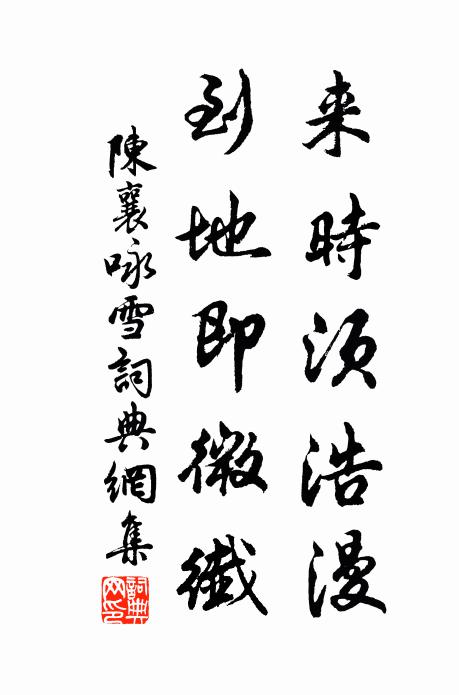 来時須浩漫
到地即微纖
陳襄咏雪詞典網集
詞典網印